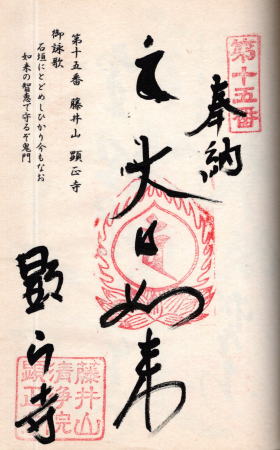 第十五番
奉納
大日如来
第十五番 藤井山 顕正寺
御詠歌
石垣にとどめしひかり今もなお
如来の智恵で守るぞ鬼門
顕正寺
藤井山
清浄院
顕正